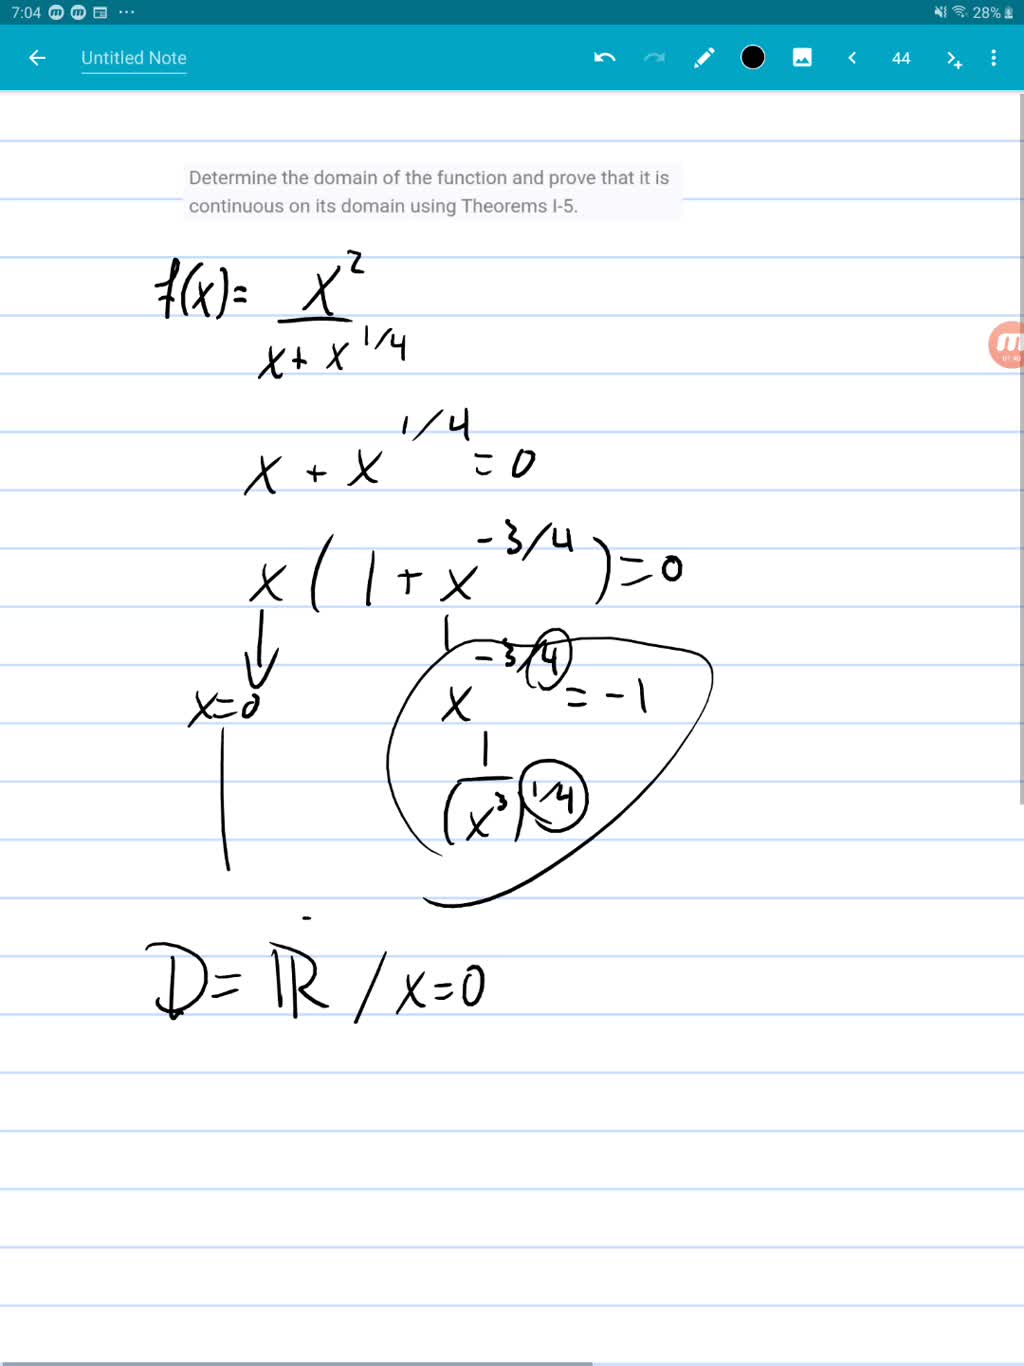 7:04 28%
Untitled Note 44
Determine the domain of the function and prove that it is
continuous on its domain using Theorems I-5.
f(x)= x²/(x+x^1/4)
x + x^1/4 = 0
x(1 + x^-3/4) = 0
x=0 x^-3/4 = -1
1/(x³)^1/4
D = ℝ / x=0